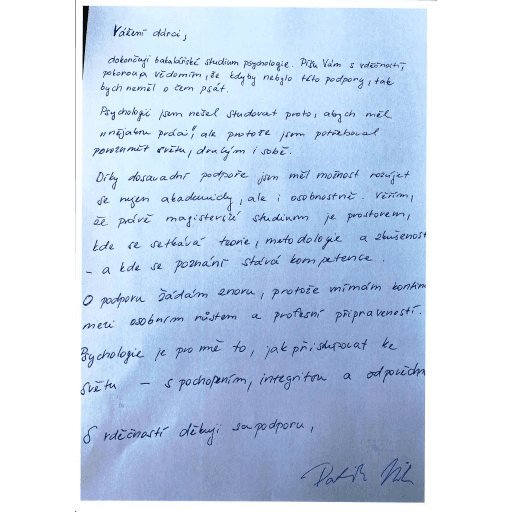 Vážení dárci,
dokončuji bakalářské studium psychologie. Píšu Vám s vděčností,
pokorou a vědomím, že kdyby nebylo této podpory, tak
bych neměl o čem psát.
Psychologii jsem nešel studovat proto, abych měl
"nějakou práci", ale protože jsem potřeboval
porozumět světu, druhým i sobě.
Díky dosavadní podpoře jsem měl možnost rozvíjet
se nejen akademicky, ale i osobnostně. Věřím,
že právě magisterské studium je prostorem,
kde se setkává teorie, metodologie a zkušenost
- a kde se poznání stává kompetence.
O podporu žádám znovu, protože vnímám kontinu
mezi osobním růstem a profesní připraveností.
Psychologie je pro mě to, jak přistupovat ke
světu – s pochopením, integritou a odpovědn
S vděčností děkuji za podporu,